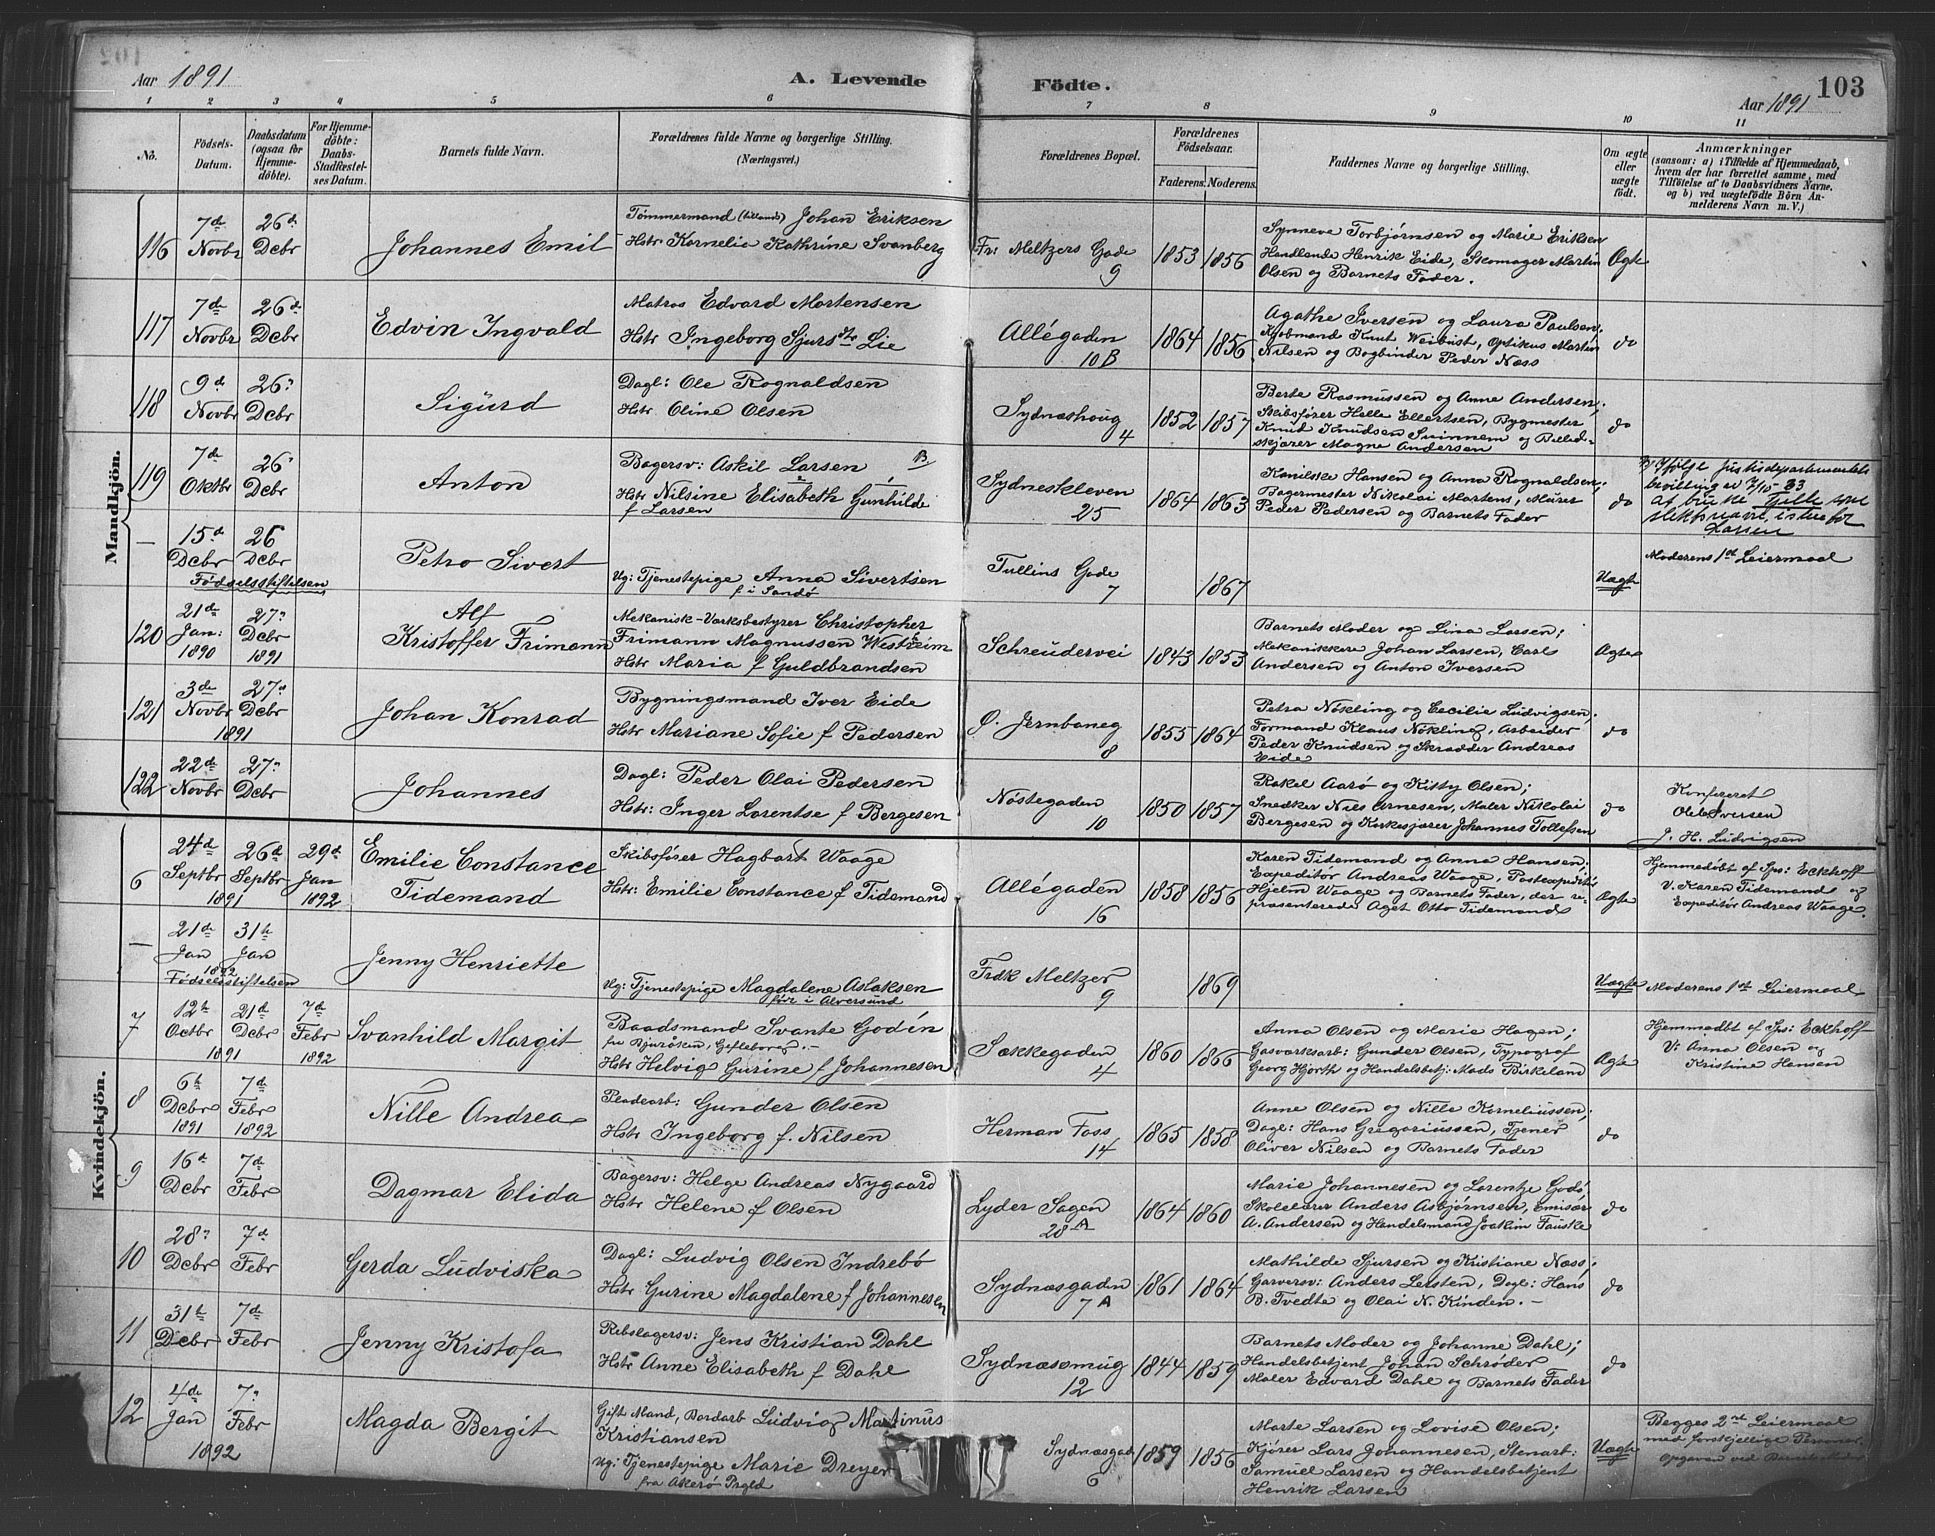 Aar 1891
A. Levende
Födte.
Aar 1891
103
1 2 3 4 5 6 7 8 9 10 11
No.
Födsels-
Datum.
Daabsdatum
(ogsaa for
Hjemme-
döbte).
For Hjemme-
döbte:
Daabs-
Stadfæstel-
ses Datum.
Barnets fulde Navn.
Forældrenes fulde Navne og borgerlige Stilling.
(Næringsvei.)
Forældrenes Bopæl.
Forældrenes
Födselsaar.
Faderens. Moderens.
Faddernes Navne og borgerlige Stilling.
Om ægte
eller
uægte
födt.
Anmærkninger
(saasom: a) i Tilfælde af Hjemmedaab,
hvem der har forrettet samme, med
Tilföielse af to Daabsvidners Navne,
og b) ved uægtefödte Börn An-
melderens Navn m. V.)
Mandkjön.
116
7de Novbr
26de Dcbr
Johannes Emil
Tømmermand Johan Eriksen
Hstr Kornelia Kathrine Svanberg
Fr: Meltzers Gade
9
1853 1856
Synneve Torbjørnsen og Marie Eriksen
Handlende Henrik Eide, Skomager Martin
Olsen og Barnets Fader.
Ægte
117
7de Novbr
26de Dcbr
Edvin Ingvald
Matros Edvard Mortensen
Hstr Ingeborg Sjursdtr Lie
Allégaden
10 B
1864 1856
Agathe Iversen og Laura Paulsen;
Kjøbmand Knut Weibust, Optikus Martin
Nilsen og Bogbinder Peder Næss
do
118
9de Novbr
26 Dcbr
Sigurd
Dagl: Ole Rognaldsen
Hstr Oline Olsen
Sydnæshoug
4
1852 1857
Berte Rasmussen og Anna Andersen;
Skibsfører Helle Ellertsen, Bygmester
Knud Knudsen Svinnem og Billed-
skjærer Magne Andersen
do
119
7de Oktbr
26 Dcbr
Anton
Bagersv: Askil Larsen
Hstr Nilsine Elisabeth Gunhilde
f Larsen
Sydneskleven
25
1864 1863
Hansen og Anna Rognaldsen;
Bagermester Nikolai Martens, Murer
Peder Pedersen og Barnets Fader
do
Ifølge Justisdepartementets
bevilling av 7/10-33
at bruke Tjelle som
slektsnavn, istedetfor
Larsen
—
15de Dcbr
26 Dcbr
Fødselsstiftelsen
Petro Sivert
Ug: Tjenestepige Anna Sivertsen
f i Sandø
Tullins Gade
7
1867
Uægte
Moderens 1ste Leiermaal
120
21de Jan: 1890
27 Dcbr 1891
Alf
Kristoffer Frimann
Mekanisk-Værksbestyrer Christopher
Frimann Magnussen Westrheim
Hstr Maria f Guldbrandsen
Schreudervei
1843 1853
Barnets Moder og Lina Larsen;
Mekanikkere Johan Larsen, Carl
Andersen og Anton Iversen
Ægte
121
3de Novbr
27de Dcbr
1891
Johan Konrad
Bygningsmand Iver Eide
Hstr Mariane Sofie f Pedersen
Ø. Jernbaneg
8
1855 1864
Petra Nøkling og Cecilie Ludvigsen;
Formand Klaus Nøkling, Arbeider
Peder Knudsen og Skrædder Andreas
Eide
do
122
22de Novbr
27 Dcbr
Johannes
Dagl: Peder Olai Pedersen
Hstr: Inger Lorentse f Bergesen
Nøstegaden
10
1850 1857
Rakel Aarø og Kitty Olsen;
Snedker Nies Arnesen, Maler Nikolai
Bergesen og Korkeskjærer Johannes Tollefsen
do
Konfereret
Ole Iversen
J. H. Ludvigsen
Kvindekjön.
6
24de Septbr
26de Septbr
1891
29de Jan 1892
Emilie Constance
Tidemand
Skibsfører Hagbart Waage
Hstr: Emilie Constance f Tidemand
Allégaden
16
1858 1856
Karen Tidemand og Anna Hansen;
Expeditør Andreas Waage, Postexpeditør
Hjelm Waage og Barnets Fader, der re-
præsenterede Aget Otto Tidemand
Ægte
Hjemmedøbt af Sp: Eckhoff
V. Karen Tidemand og
Expeditør Andreas Waage.
—
21de Jan
31te Jan
1892
Fødselsstiftelsen
Jenny Henriette
Ug: Tjenestepige Magdalene Aslaksen
før i Alversund
Frdk Meltzer
9
1869
Uægte
Moderens 1ste Leiermaal
7
12te Octbr
21de Dcbr
1891
7de Febr 1892
Svanhild Margit
Baadsmand Svante Godén
fra Bjuråken, Gefleborg. —
Hstr Helvig Gurine f Johannesen
Sækkegaden
4
1860 1866
Anna Olsen og Marie Hagen;
Gasværksarb: Gunder Olsen, Typograf
Georg Hjorth og Handelsbetj: Mads Birkeland
Ægte
Hjemmedøbt af Sp: Eckhoff
V: Anna Olsen og
Kristine Hansen
8
6te Dcbr 1891
7de Febr 1892
Nille Andrea
Pladearb: Gunder Olsen
Hstr Ingeborg f. Nilsen
Herman Foss
14
1865 1858
Anne Olsen og Nille Korneliussen;
Dagl: Hans Gregoriussen, Tjener
Oliver Nilsen og Barnets Fader
do
9
16de Dcbr
7de Febr
Dagmar Elida
Bagersv: Helge Andreas Nygaard
Hstr Helene f Olsen
Lyder Sagen
28 A
1864 1860
Marie Johannesen og Lorentze Godø
Skolelærer Anders Asbjørnsen, Emisær
A. Andersen og Handelsmand Joakim Fauske
do
10
28 Dcbr
7de Febr
Gerda Ludviska
Dagl: Ludvig Olsen Indrebø
Hstr Gurine Magdalene f Johannesen
Sydnæsgaden
7 A
1861 1864
Mathilde Sjursen og Kristiane Næss;
Garversv: Anders Lersten, Dagl: Hans
B. Tvedte og Olai N. Kinden. —
do
11
31te Dcbr
7de Febr
Jenny Kristofa
Rebslagersv: Jens Kristian Dahl
Hstr Anne Elisabeth f Dahl
Sydnæssmug
12
1844 1859
Barnets Moder og Johanne Dahl;
Handelsbetjent Johan Schrøder
Maler Edvard Dahl og Barnets Fader
do
12
4de Jan
7 Febr
1892
Magda Bergit
Gift Mand, Bordarb Ludvig Martinus
Kristiansen
Ug: Tjenestepige Marie Dreyer
fra Akerø Prgld
Sydnæsgad
6
1859 1856
Marte Larsen og Lovise Olsen;
Kjører Lars Johannesen, Stenarb:
Samuel Larsen og Handelsbetjent
Henrik Larsen
Uægte
Begges 2det Leiermaal
med forskjellige Personer.
Opgaven ved Barnets Moder